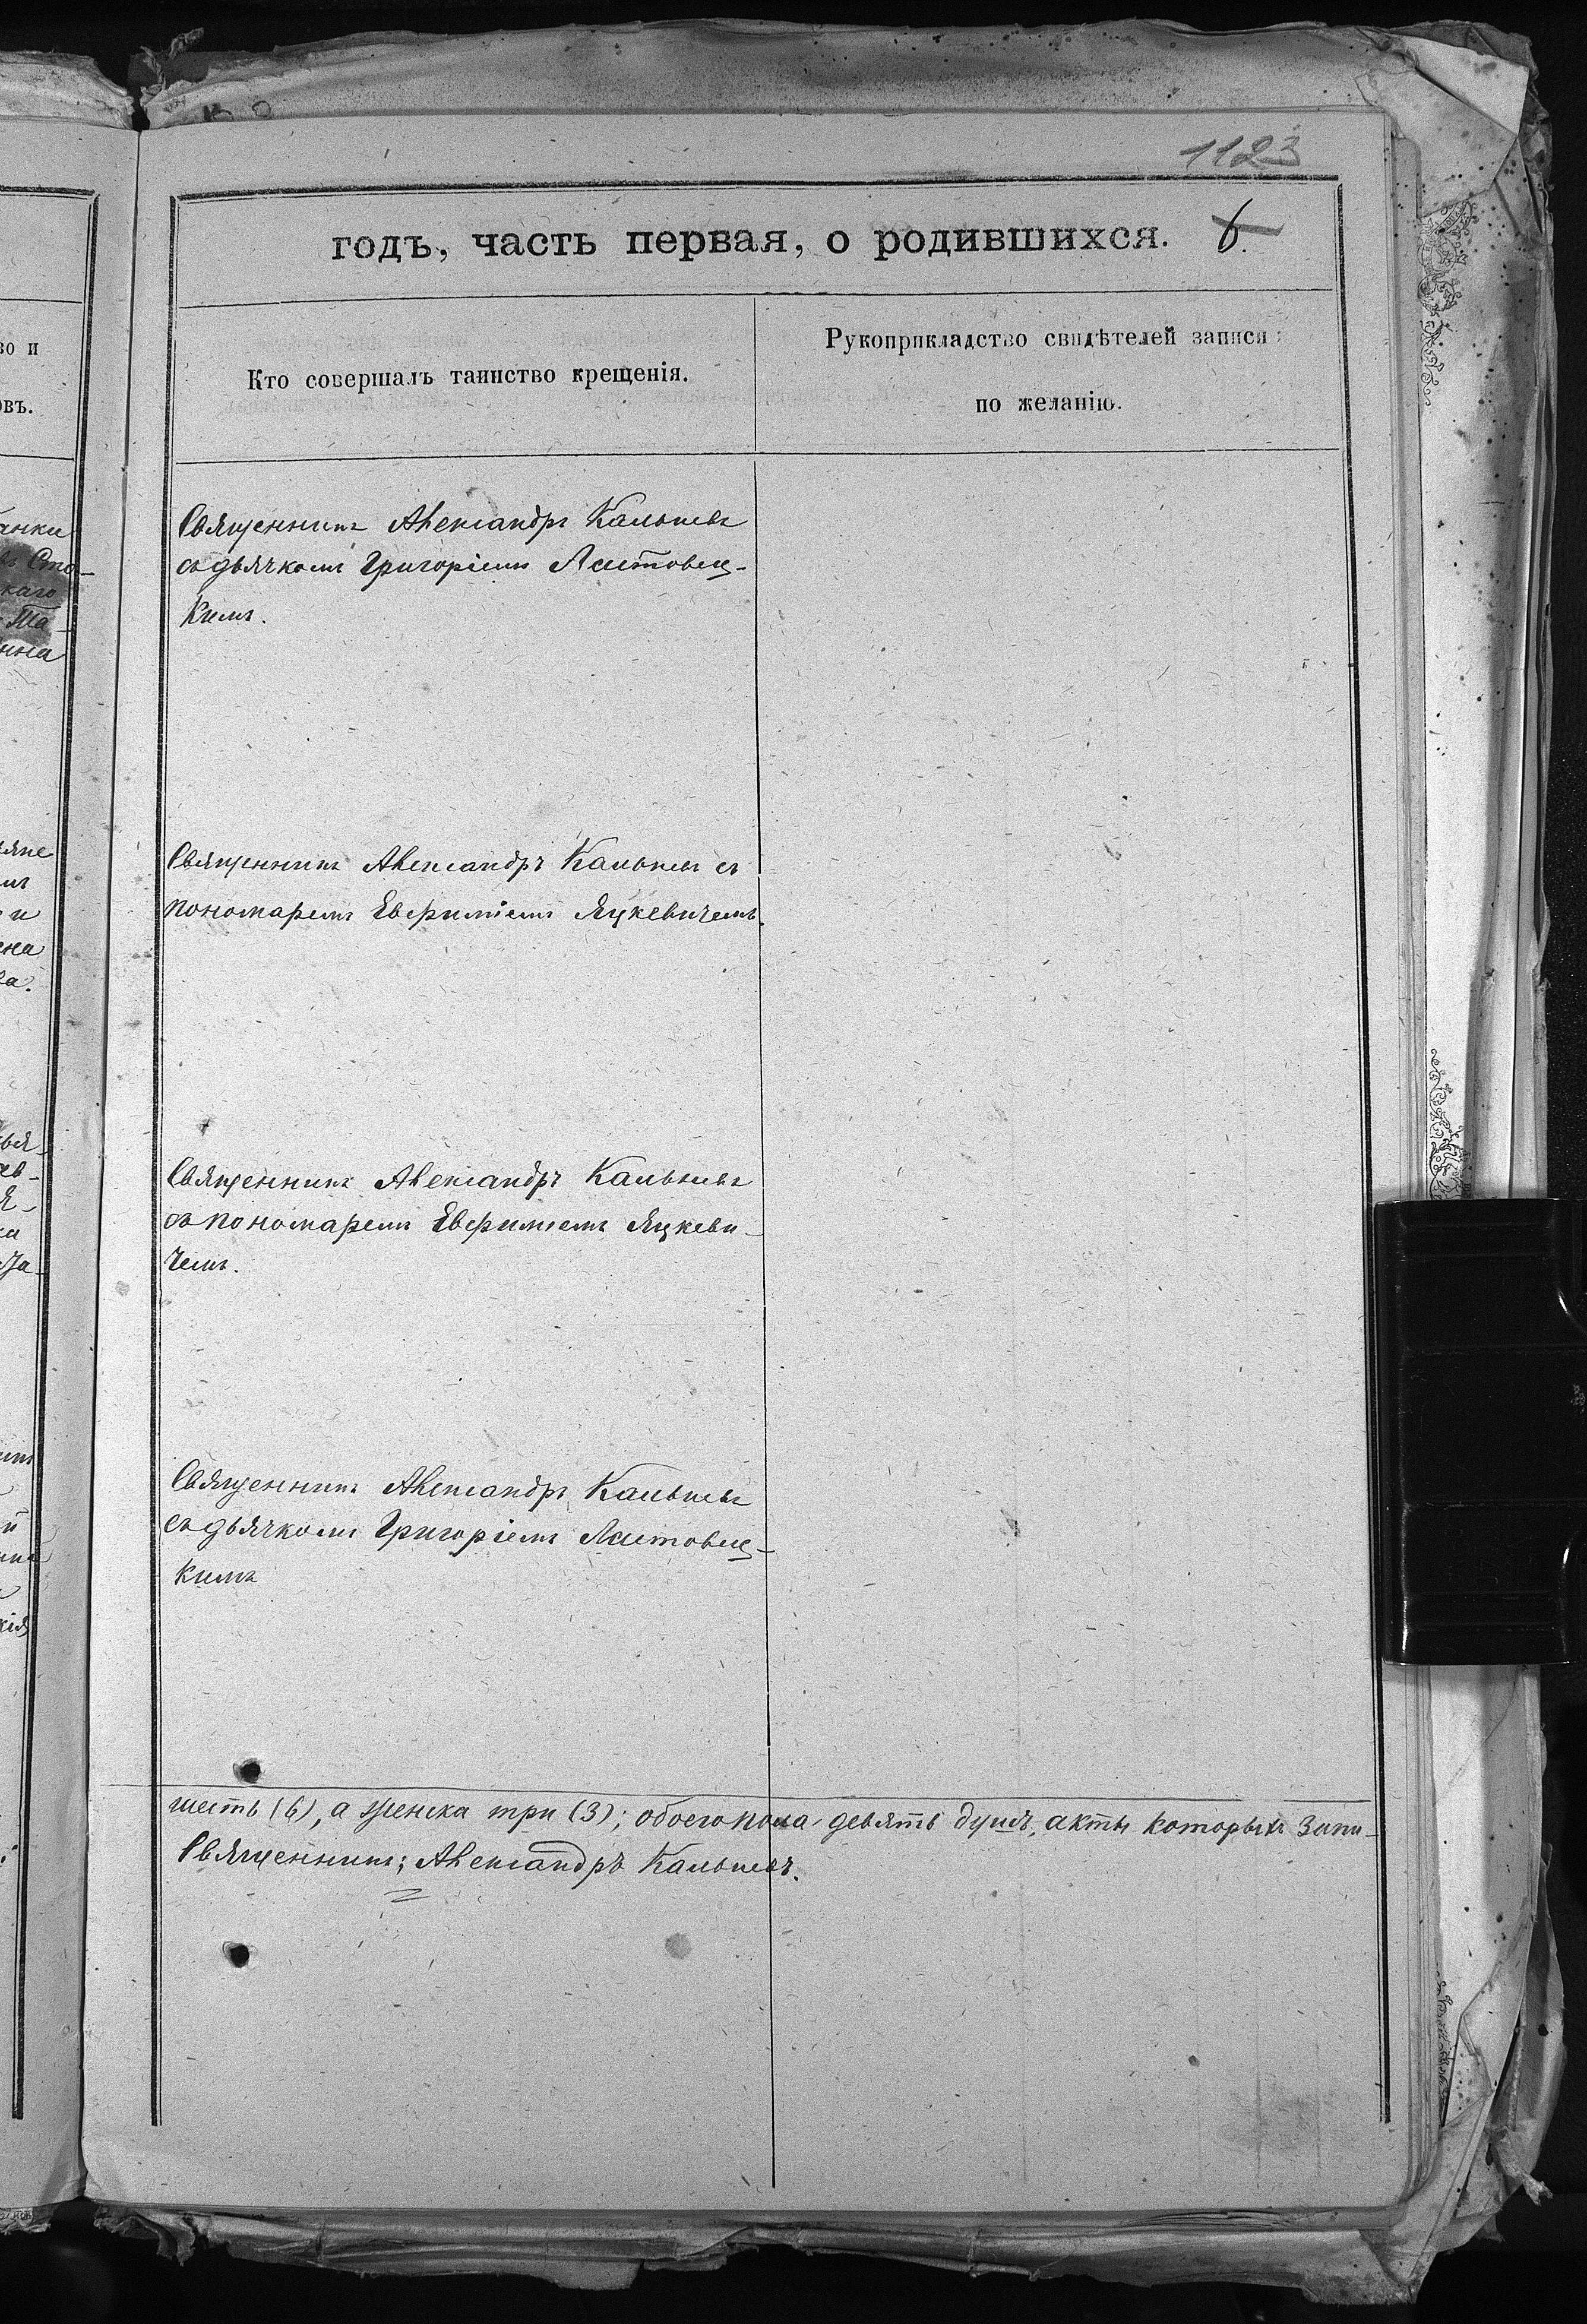 1123
годъ, часть первая, о родившихся. 6.
Кто совершалъ таинство крещенія.
Рукоприкладство свидѣтелей записи
по желанію.
Священникъ Александръ Кальневъ
съ дьячкомъ Григоріемъ Листовец-
кимъ.
Священникъ Александръ Кальневъ съ
пономаремъ Евфиміемъ Яцкевичемъ.
Священникъ Александръ Кальневъ
съ пономаремъ Евфиміемъ Яцкеви-
чемъ.
Священникъ Александръ Кальневъ
съ дьячкомъ Григоріемъ Листовец-
кимъ
шесть (6), а женска три (3); обоего пола девять душъ, акты которыхъ запи-
Священникъ; Александръ Кальневъ.